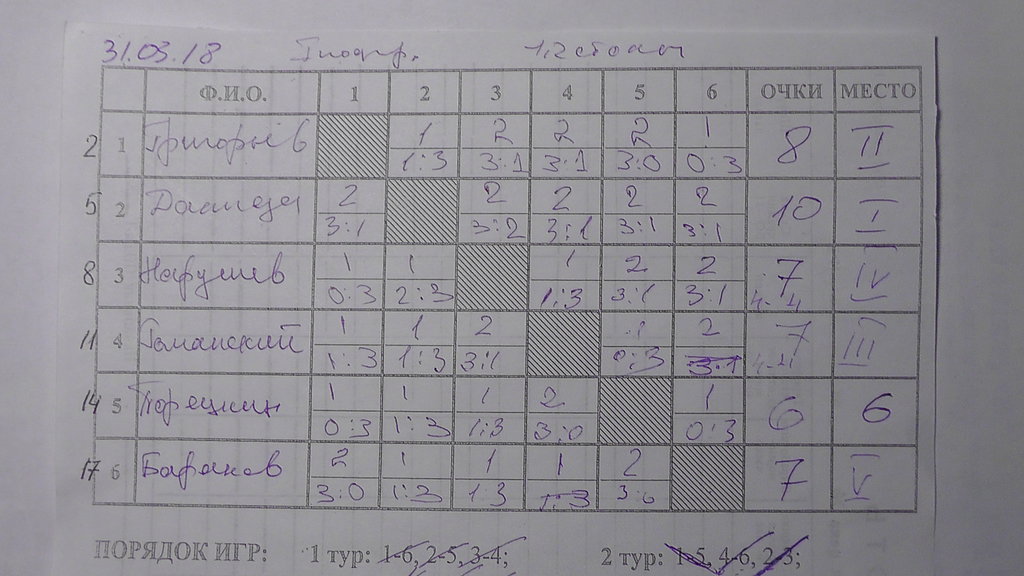 31.03.18 1,2 столы
Ф.И.О. 1 2 3 4 5 6 ОЧКИ МЕСТО
2 1 Григорьев 1 2 2 2 1 8 II
1:3 3:1 3:1 3:0 0:3
5 2 2 2 2 2 2 10 I
3:1 3:2 3:1 3:1 3:1
8 3 Нарушев 1 1 1 2 2 7 IV
0:3 2:3 1:3 3:1 3:1
11 4 Романский 1 1 2 1 2 7 III
1:3 1:3 3:1 0:3 3:1
14 5 1 1 1 2 1 6 6
0:3 1:3 1:3 3:0 0:3
17 6 Баранов 2 1 1 1 2 7 V
3:0 1:3 1:3 1:3 3:0
ПОРЯДОК ИГР: 1 тур: 1-6, 2-5, 3-4; 2 тур: 1-5, 4-6, 2-3;